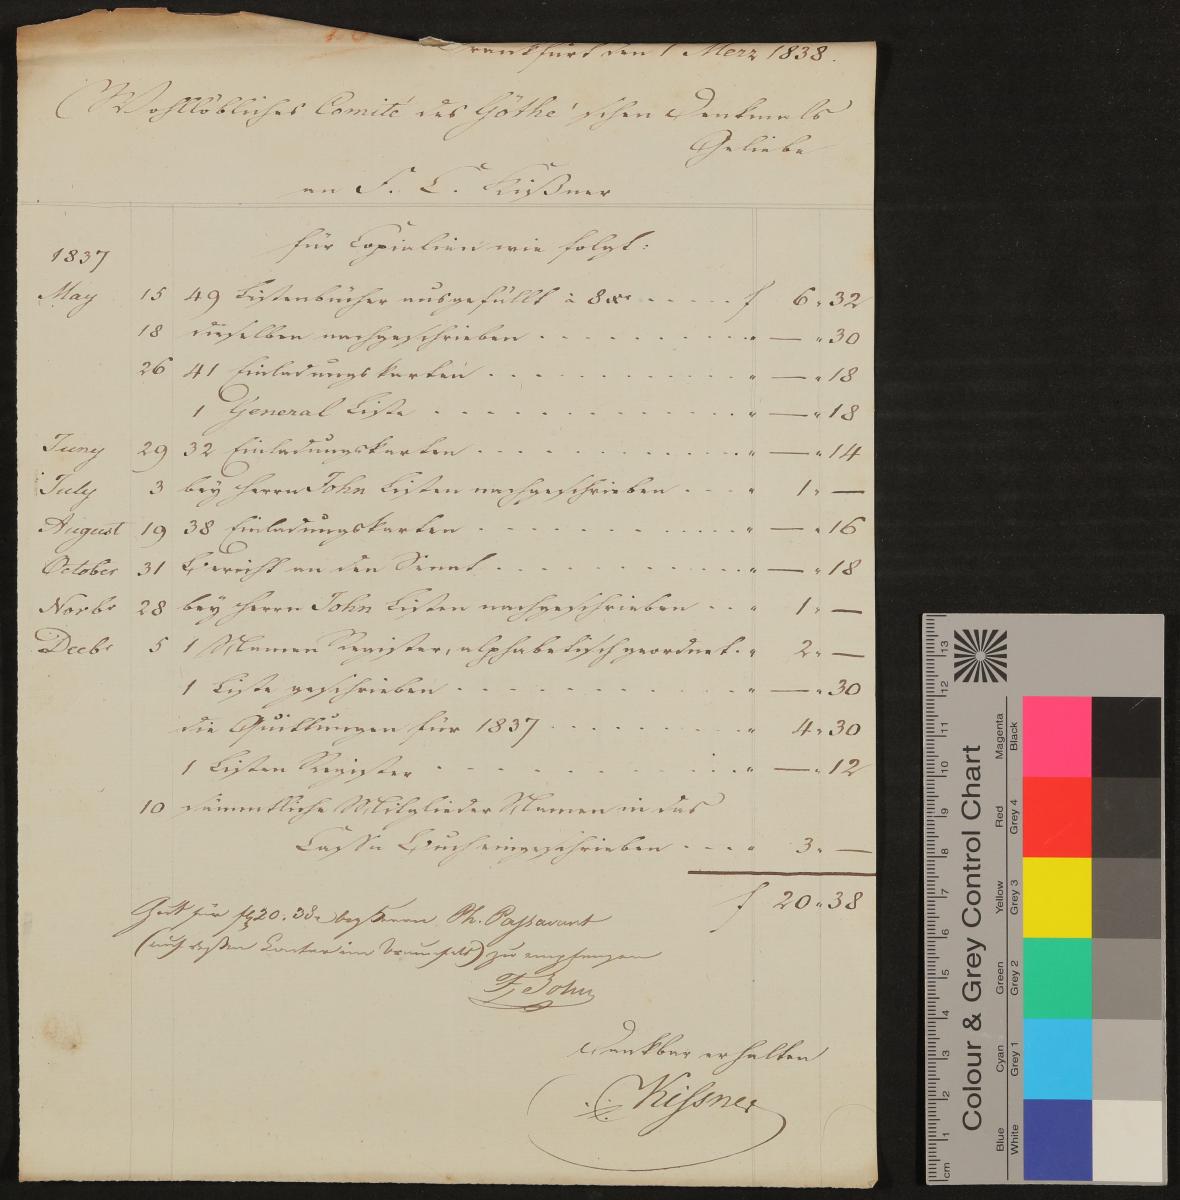 Frankfurt den 1 Merz 1838.
Wohllöbliches Comité des Göthe'schen Denkmals
Geliebe
an F. C. Kißner
für Copialien wie folgt:
1837
May 15 49 Listenbücher ausgefüllt à 8 xr f 6 " 32
18 dieselben nachgeschrieben " — " 30
26 41 Einladungskarten " — " 18
1 General Liste " — " 18
Juny 29 32 Einladungskarten " — " 14
July 3 bey Herrn John Listen nachgeschrieben " 1 " —
August 19 38 Einladungskarten " — " 16
October 31 Bericht an den Senat " — " 18
Novbr 28 bey Herrn John Listen nachgeschrieben " 1 " —
Decbr 5 1 Namen Register, alphabetisch geordnet " 2 " —
1 Liste geschrieben " — " 30
die Quittungen für 1837 " 4 " 30
1 Listen Register " — " 12
10 sämmtliche Mitglieder Namen in das
Cassa Buch eingeschrieben " 3 " —
f 20 " 38
Gutt für f 20. 38 bey Herrn Ph. Passavant
(auf dessen Contor im Braunfels) zu empfangen
F. John
Dankbar erhalten
Kissner
Colour & Grey Control Chart
Blue Cyan Green Yellow Red Magenta
White Grey 1 Grey 2 Grey 3 Grey 4 Black
cm 1 2 3 4 5 6 7 8 9 10 11 12 13